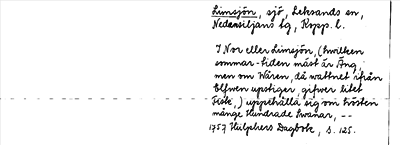 Limsjön, sjö, Leksands sn,
Nedansiljans tg, Kopp. l.
I Nor eller Limsjön, (hwilken
sommar-tiden mäst är Äng,
men om Wåren, då wattnet ifrån
Elfwen upstiger, gifwer litet
Fisk,) uppehålla sig om hösten
många Hundrade Swanar, --
1757 Hülphers Dagbok, s. 125.